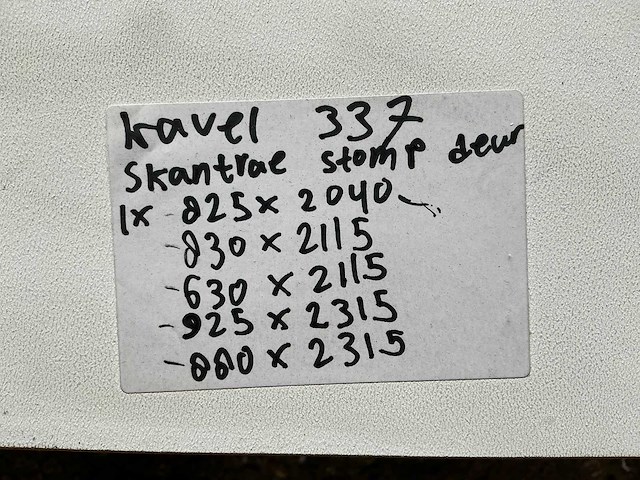 kavel 337
Skantrae stomp deur
1x 825 x 2040
- 830 x 2115
- 630 x 2115
- 925 x 2315
- 880 x 2315